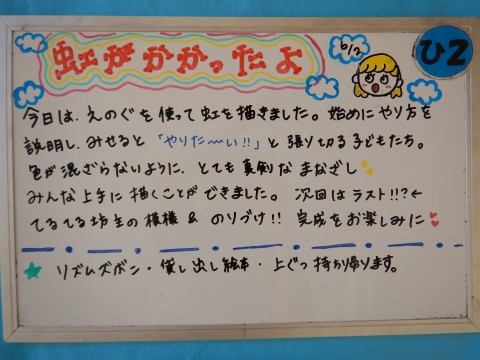 虹がかかったよ
6/2
ひ2
今日は、えのぐを使って虹を描きました。始めにやり方を
説明し、みせると「やりた〜い!!」と張り切る子どもたち。
色が混ざらないように、とても真剣なまなざし
みんな上手に描くことができました。次回はラスト!!?←
てるてる坊主の模様&のりづけ!!完成をお楽しみに
★ リズムズボン・貸し出し絵本・上ぐつ持ち帰ります。